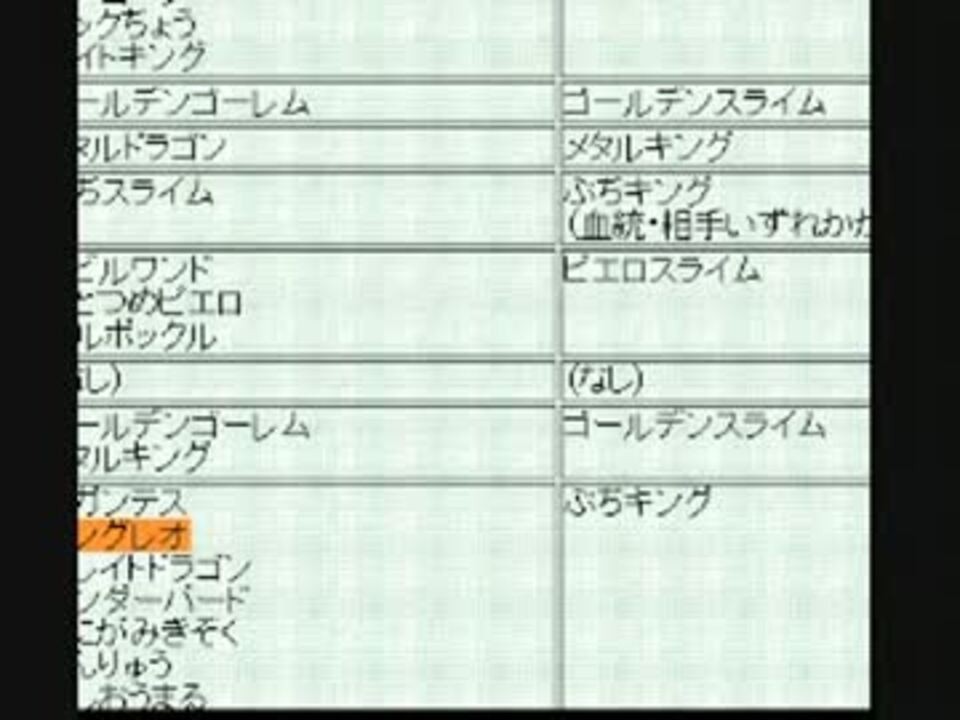 ックちょう
イトキング
ールデンゴーレム
ゴールデンスライム
タルドラゴン
メタルキング
ちスライム
ぶちキング
(血統・相手いずれかが
ビルワンド
とつめピエロ
ルポックル
ピエロスライム
し)
(なし)
ールデンゴーレム
タルキング
ゴールデンスライム
ガンテス
ングレオ
レイトドラゴン
ンダーバード
にがみきぞく
んりゅう
おうまる
ぶちキング